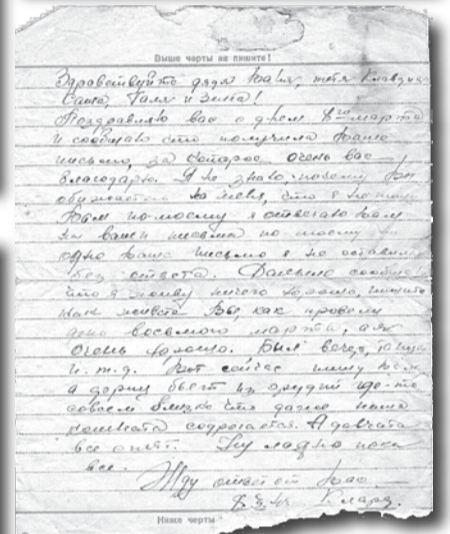 Выше черты не пишите!
Здравствуйте дядя Ваня, тетя Клавдия
Саша, Галя и Зина!
Поздравляю вас с днем 8го марта
и сообщаю что получила Ваше
письмо, за которое очень вас
благодарю. Я не знаю, почему Вы
обижаетесь на меня, что я не пишу
Вам по-моему я отвечаю Вам
на ваши письма по-моему ни
одно Ваше письмо я не оставила
без ответа. Дальше сообщаю
что я живу ничего хорошо, пишите
как живете Вы, как провели
день восьмого марта, а я
очень хорошо. Был вечер, танцы
и т.д. Вот сейчас пишу Вам
а герма бьет из орудий где-то
совсем близко что даже наша
комната содрогается. А девчата
все спят. Ну ладно пока
все.
Жду ответ от Вас
Клара.
Ниже черты